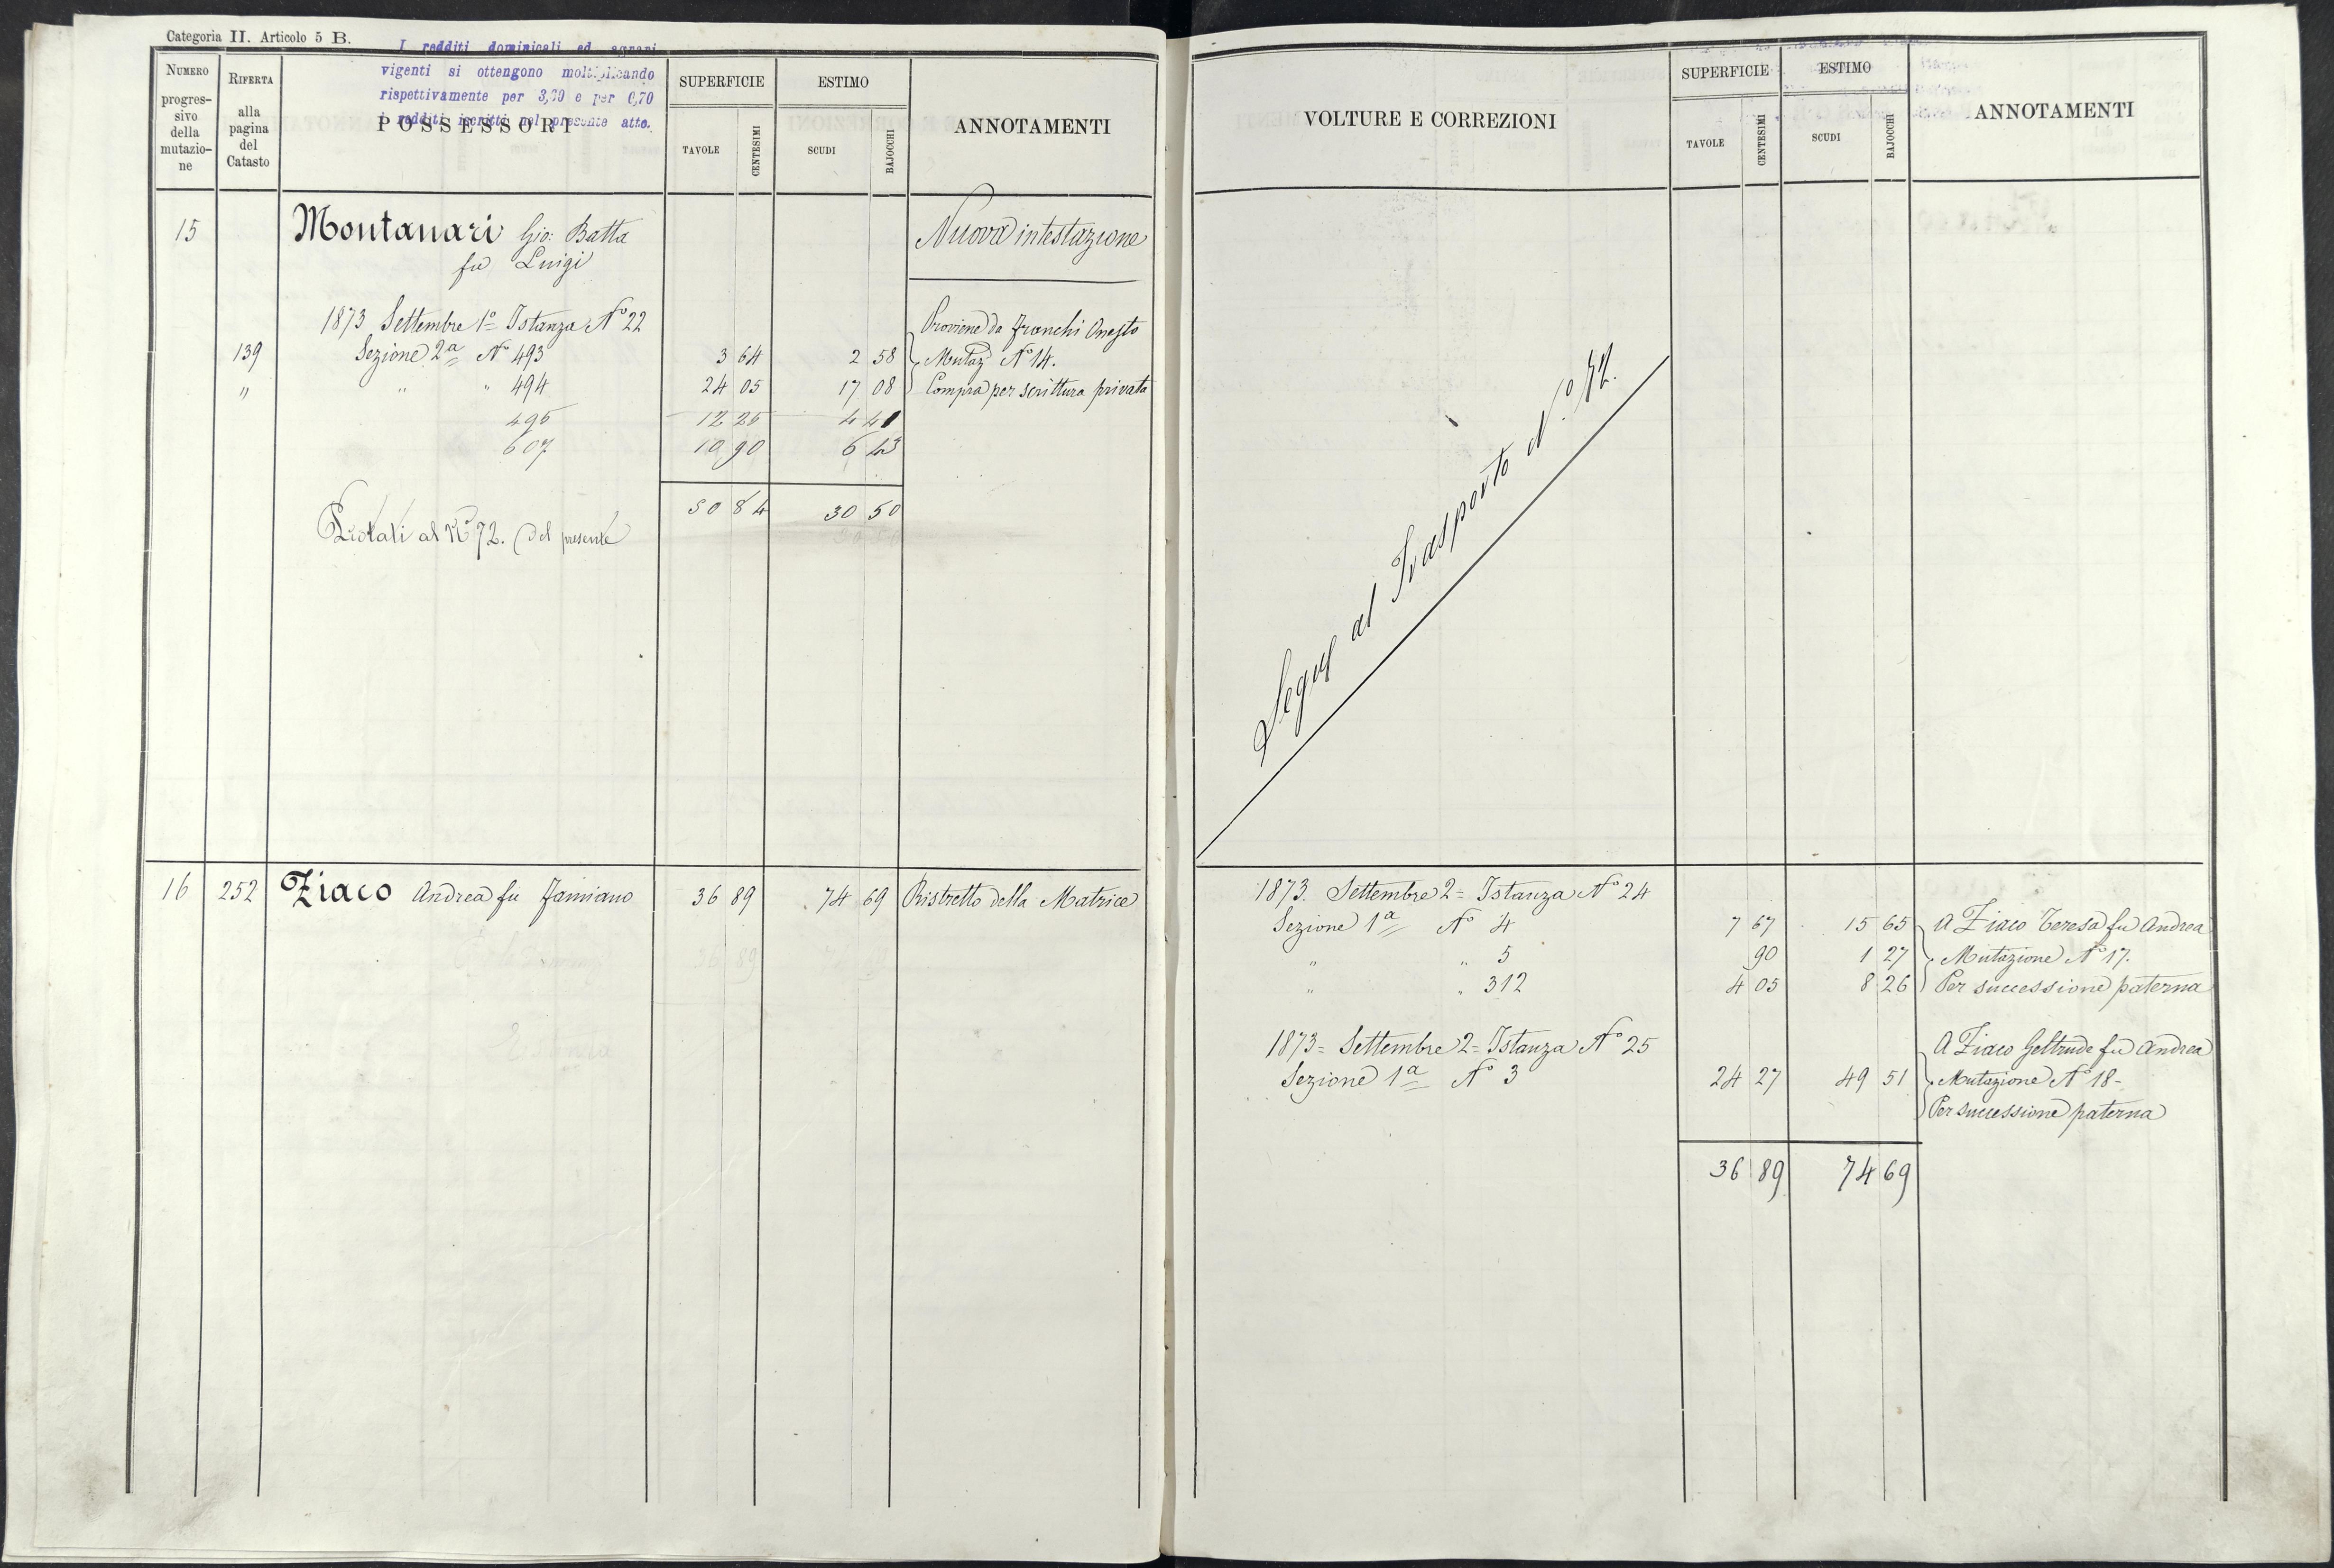 Categoria II. Articolo 5 B.
I redditi dominicali ed agrari
vigenti si ottengono moltiplicando
rispettivamente per 3,20 e per 0,70
i redditi iscritti nel presente atto.
NUMERO
progres-
sivo
della
mutazio-
ne
RIFERTA
alla
pagina
del
Catasto
POSSESSORI
SUPERFICIE
TAVOLE
CENTESIMI
ESTIMO
SCUDI
BAJOCCHI
ANNOTAMENTI
15 Montanari Gio: Batta Nuova intestazione
fu Luigi
1873 Settembre 1º Istanza Nº 22 Proviene da Franchi Onesto
139 Sezione 2ª Nº 493 3 64 2 58 Mutaz Nº 14.
" " " 494 24 05 17 08 Compra per scrittura privata
495 12 25 4 41
607 10 90 6 43
50 84 30 50
Portati al Nº 72. (del presente
16 252 Ziaco Andrea fu Damiano 36 89 74 69 Ristretto della Matrice
36 89 74 69
VOLTURE E CORREZIONI
SUPERFICIE
TAVOLE
CENTESIMI
ESTIMO
SCUDI
BAJOCCHI
ANNOTAMENTI
Segue al Trasporto Nº 72.
1873. Settembre 2= Istanza Nº 24
Sezione 1ª Nº 4 7 67 15 65 A Ziaco Teresa fu Andrea
" " 5 90 1 27 Mutazione Nº 17.
" " 312 4 05 8 26 Per successione paterna
1873= Settembre 2= Istanza Nº 25 A Ziaco Geltrude fu Andrea
Sezione 1ª Nº 3 24 27 49 51 Mutazione Nº 18-
Per successione paterna
36 89 74 69